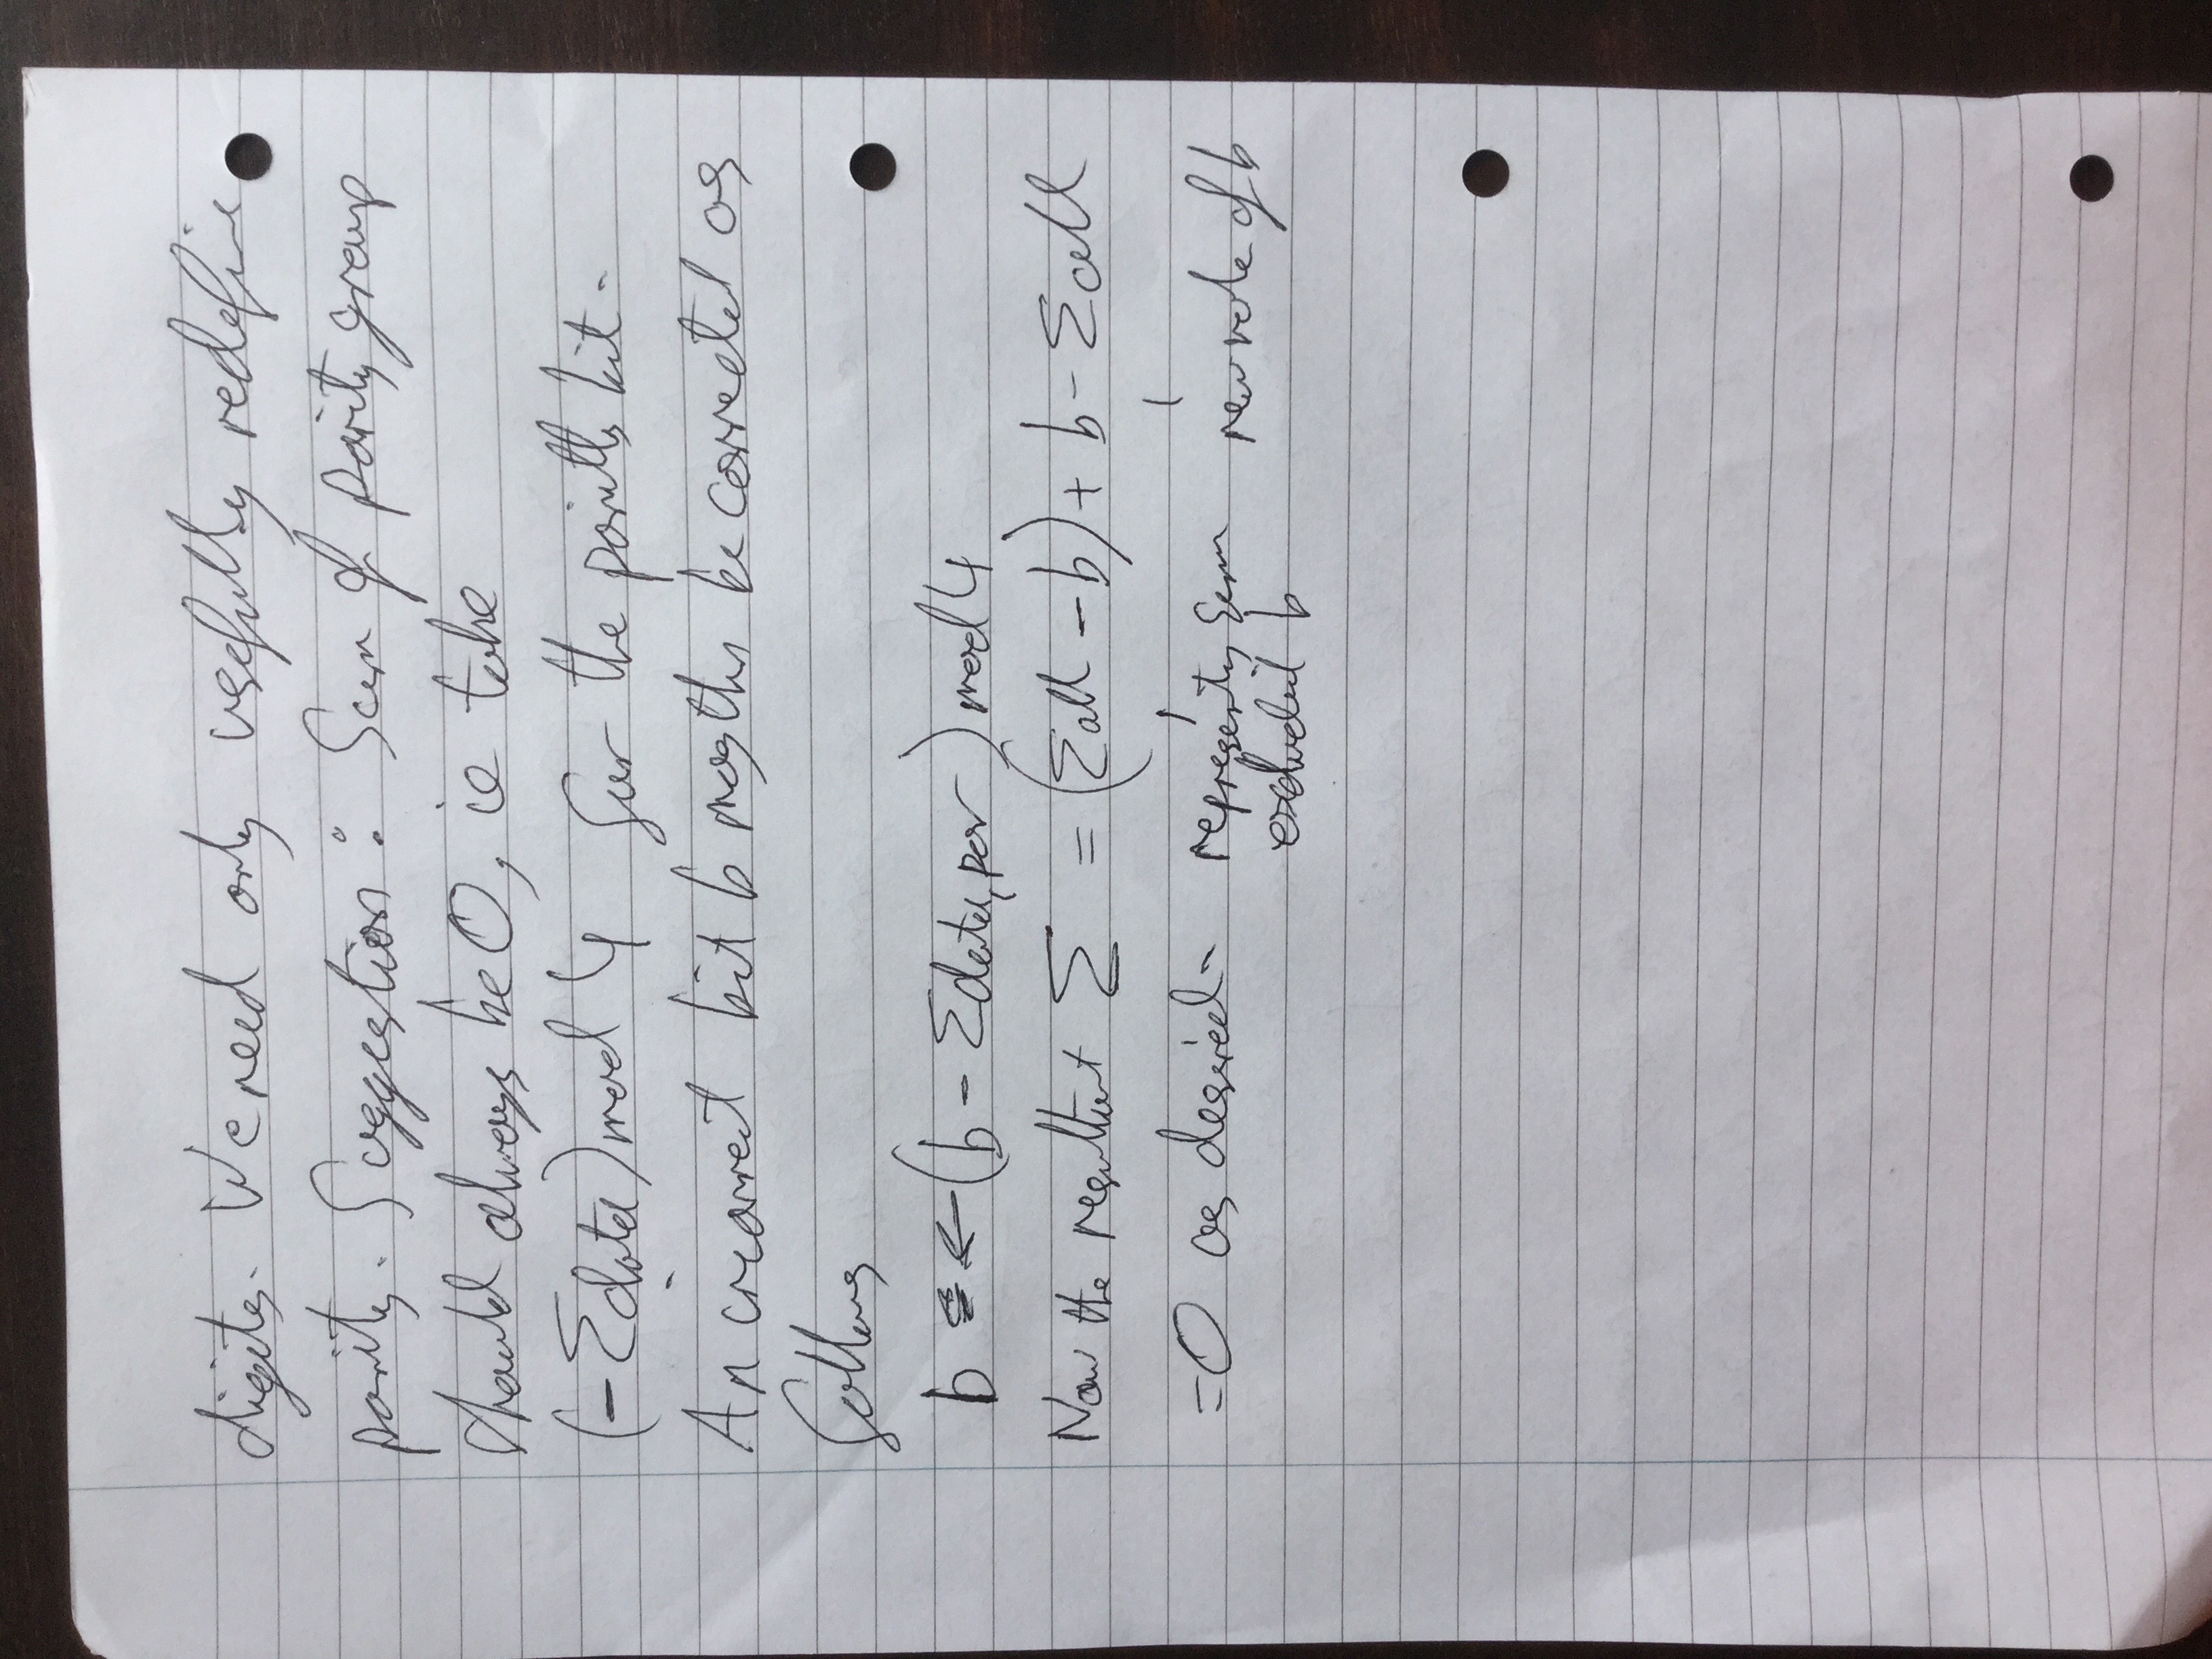 digits. We need only usefully redefine
parity. Suggestion: Sum of parity group
should always be 0, ie take
(-Σdata) mod 4 for the parity bit.
An incorrect bit b may then be corrected as
follows
b ← (b - Σdata, par) mod 4
Now the resultant Σ = (Σall - b) + b - Σall
=0 as desired. represents sum new value of b
excluded b